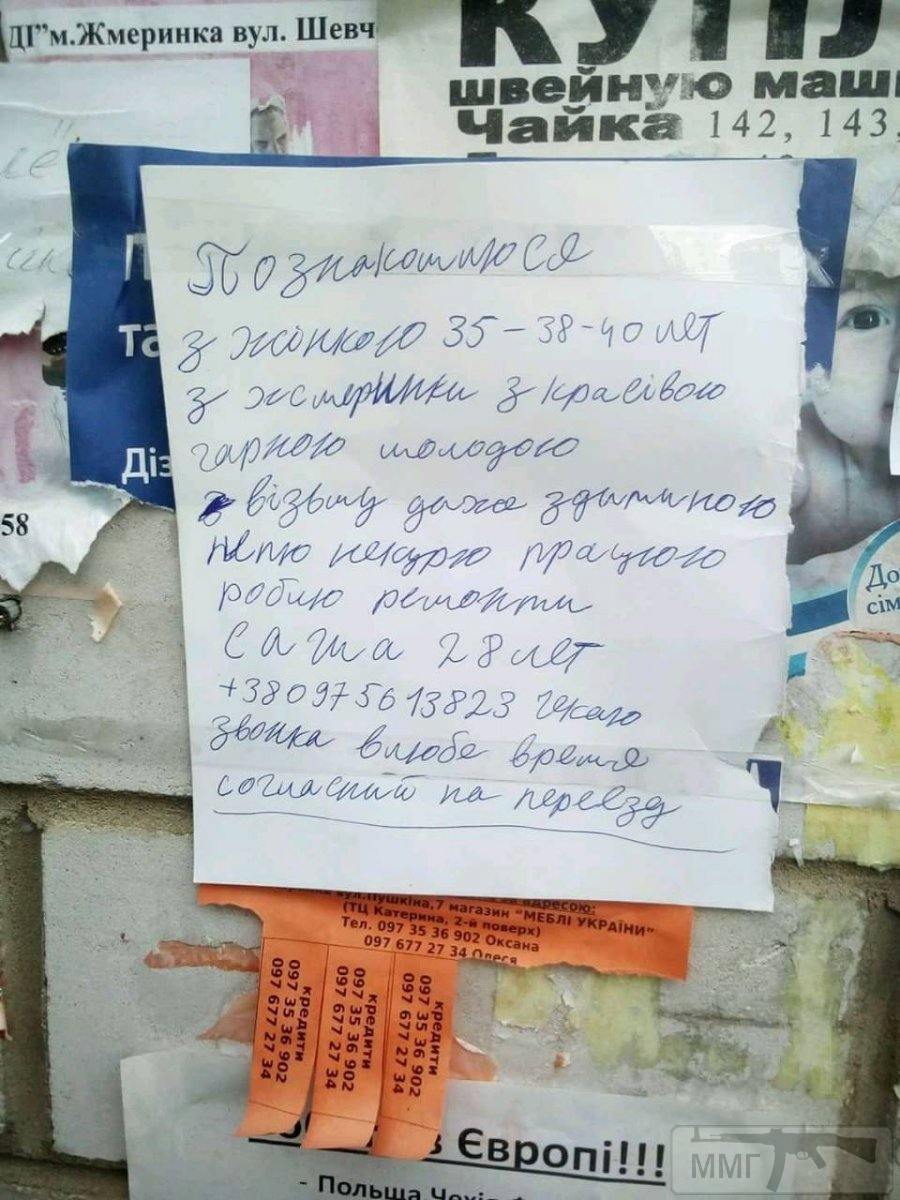 ДІ"м.Жмеринка вул. Шевч
КУПЛ
швейную маши
Чайка 142, 143,
та
Діз
58
Познакомлюся
з жінкою 35-38-40 лет
з жмеринки з красівою
гарною молодою
візьму даже здитиною
непю некурю працюю
роблю ремонти
Саша 28 лет
+380975613823 Чекаю
звонка влюбе время
согласний на переезд
До
сім
адресою:
вул.Пушкіна,7 магазин "МЕБЛІ УКРАЇНИ"
(ТЦ Катерина, 2-й поверх)
Тел. 097 35 36 902 Оксана
097 677 27 34 Олеся
кредити
097 35 36 902
097 677 27 34
кредити
097 35 36 902
097 677 27 34
кредити
097 35 36 902
097 677 27 34
в Європі!!!
- Польща Чехія
ММГ